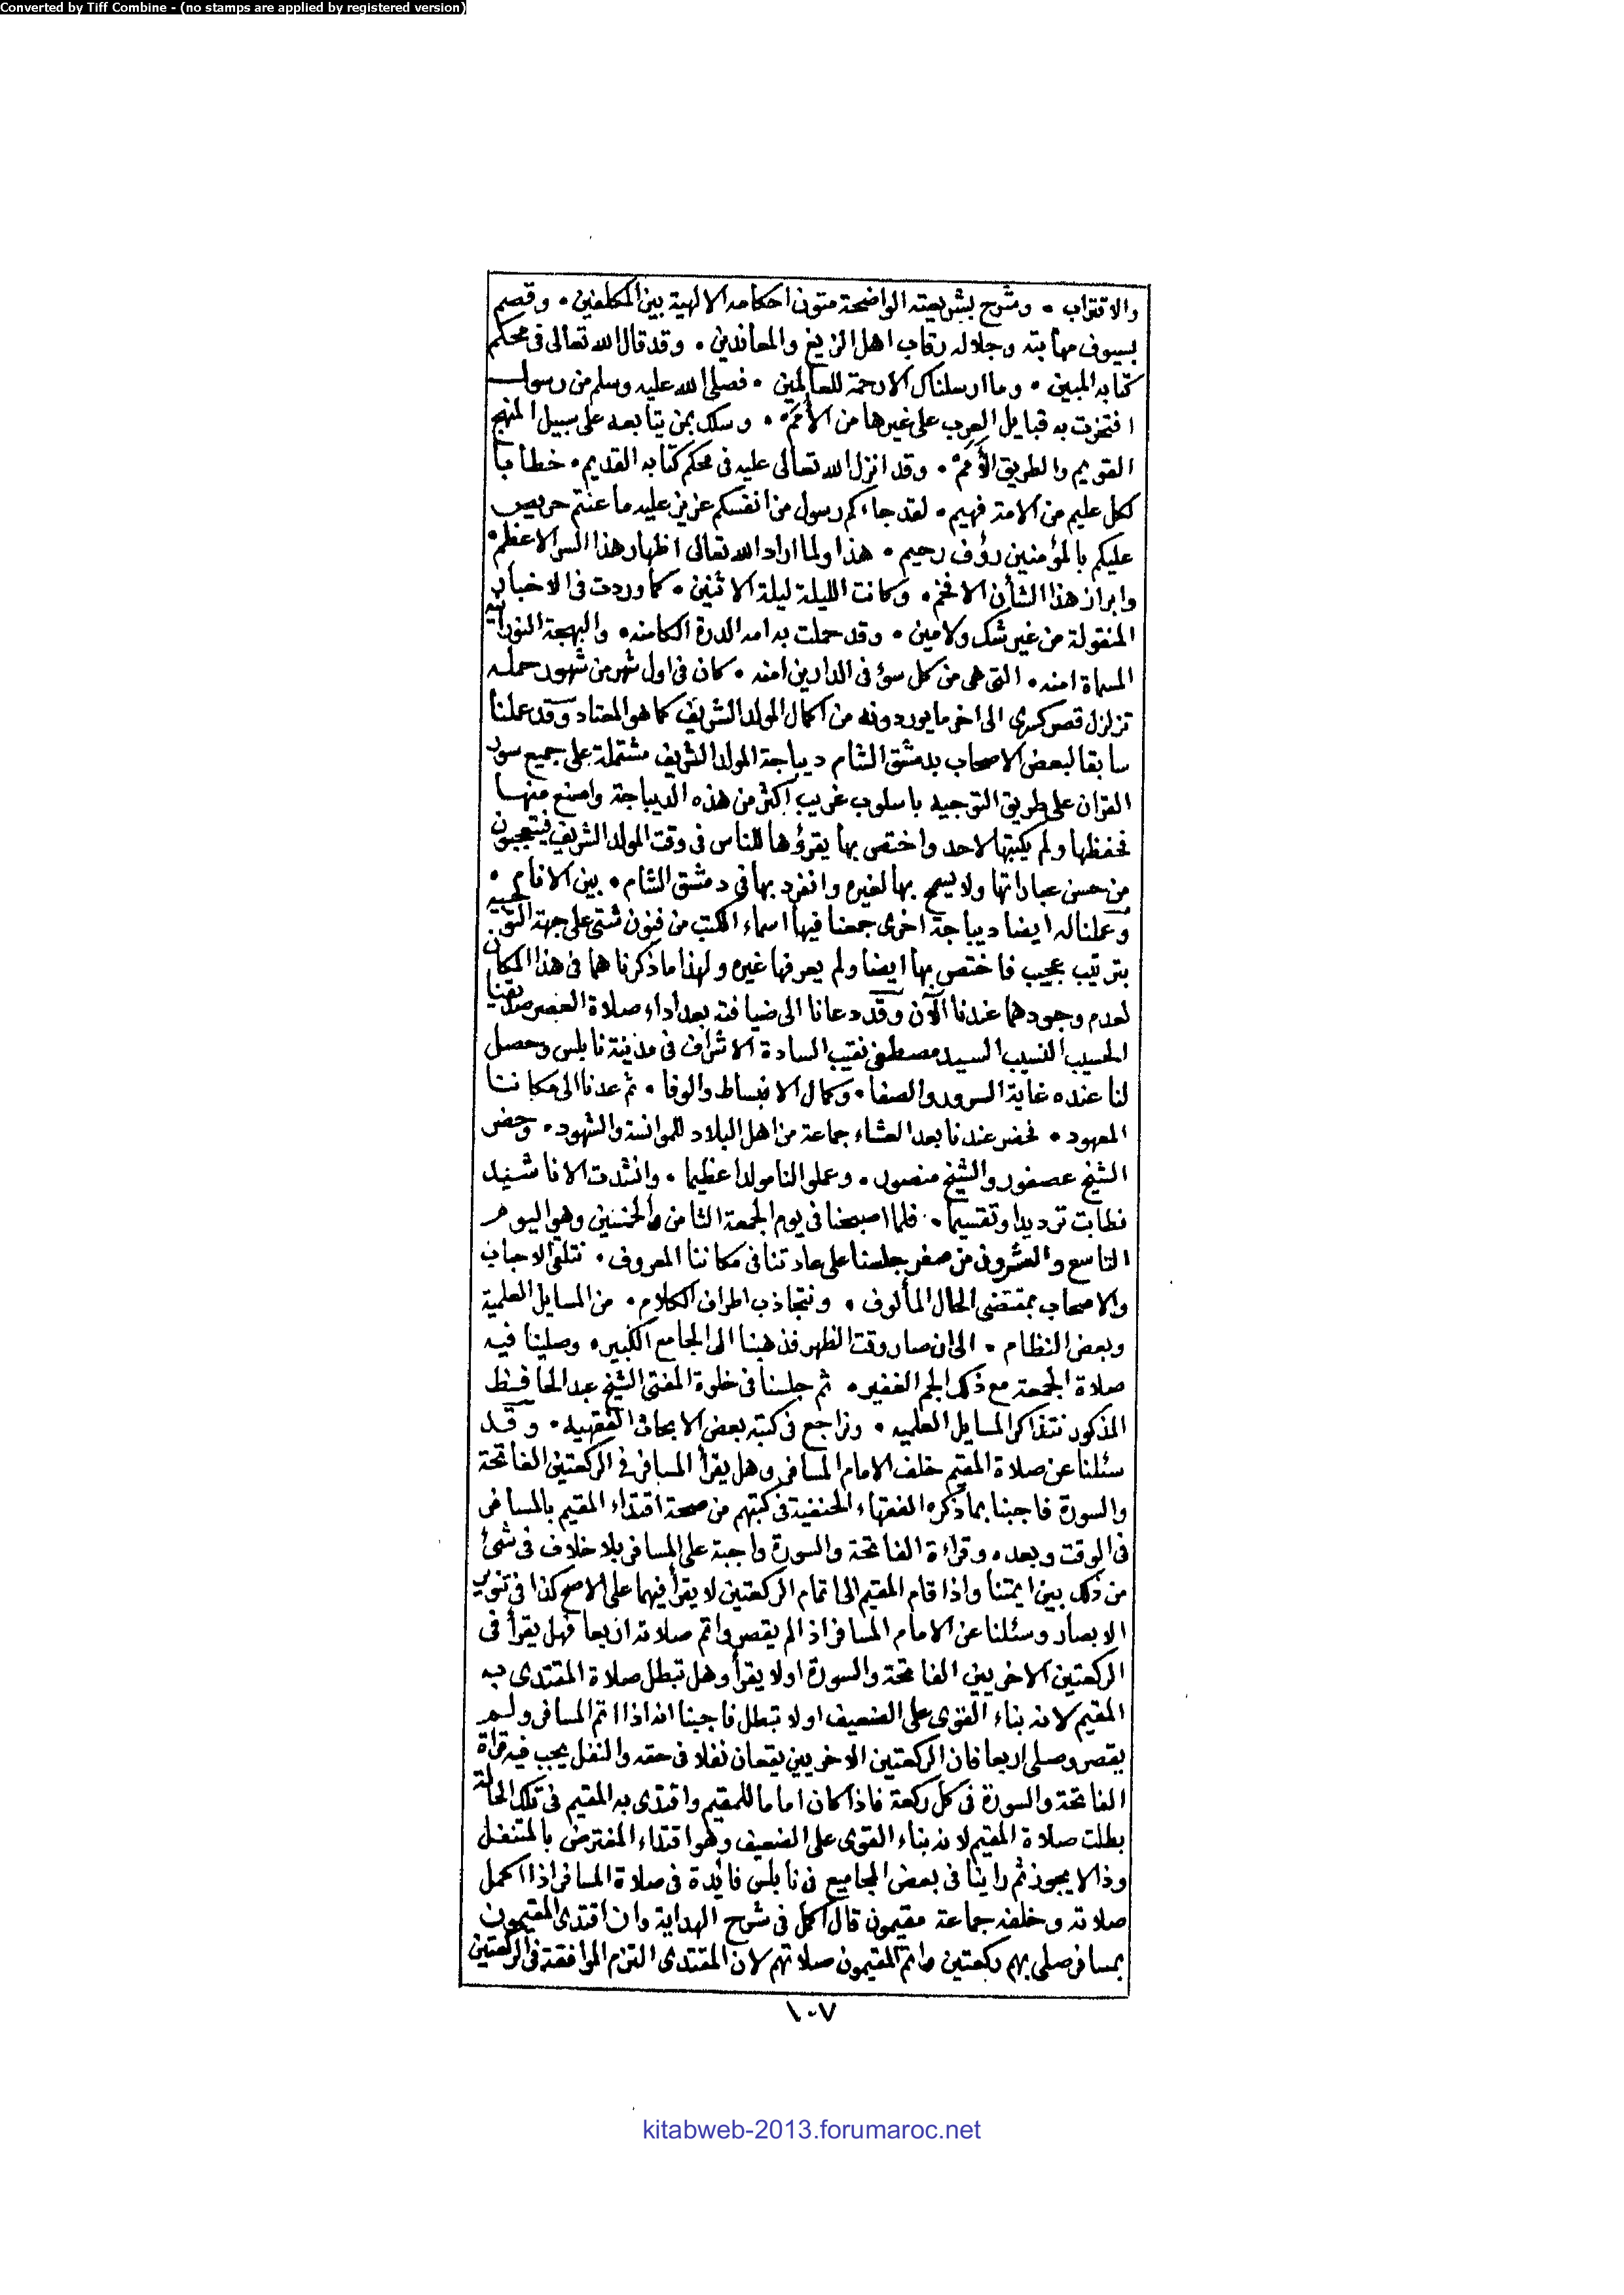 Converted by Tiff Combine - (no stamps are applied by registered version)
والاقتراب ۰ وشرح بشريعته الواضحة متون احكامه الالهية بين المكلفين ۰ وقصم
بسيوف مهابته وجلاله رقاب اهل الزيغ والمعاندين ۰ وقد قال الله تعالى فى محكم
كتابه المبين ۰ وما ارسلناك الا رحمة للعالمين ۰ فصلى الله عليه وسلم من رسول
افتخرت به قبايل العرب على غيرها من الأمم ۰ وسلك بمن يتابعه على سبيل المنهج
القويم والطريق الأمم ۰ وقد انزل الله تعالى عليه فى محكم كتابه القديم ۰ خطابا
لكل عليم من الامة فهيم ۰ لقد جاءكم رسول من انفسكم عزيز عليه ما عنتم حريص
عليكم بالمؤمنين رؤف رحيم ۰ هذا ولما اراد الله تعالى اظهار هذا السر الاعظم ۰
وابراز هذا الشأن الافخم ۰ وكانت الليلة ليلة الاثنين ۰ كما وردت فى الاخبار
المنقولة من غير شك ولا مين ۰ وقد حملت به امه الدرة الكامنه ۰ والبهجة النورانية
المسماة امنه ۰ التى هى من كل سؤ فى الدارين امنه ۰ كان فى اول شهر من شهور حمله
تزلزل قصر كسرى الى اخر ما يوردونه من اكمال المولد الشريف كما هو المعتاد وقد عملنا
سابقا لبعض الاصحاب بدمشق الشام ديباجة المولد الشريف مشتملة على جميع سور
القران على طريق التوجيه باسلوب غريب اكثر من هذه الديباجة واصنع منها
فحفظها ولم يكتبها لاحد واختص بها يقرؤها للناس فى وقت المولد الشريف فيتعجبون
من حسن عباراتها ولا يسمح بها لغيره وانفرد بها فى دمشق الشام ۰ بين الانام ۰
وعملنا له ايضا ديباجة اخرى جمعنا فيها اسماء الكتب من فنون شتى على جهة التوجيه
بترتيب عجيب فاختص بها ايضا ولم يعرفها غيره ولهذا ما ذكرناهما فى هذا المكان
لعدم وجودهما عندنا الآن وقد دعانا الى ضيافته بعد اداء صلاة العصر صديقنا
الحسيب النسيب السيد مصطفى نقيب السادة الاشراف فى مدينة نابلس وحصل
لنا عنده غاية السرور والصفا ۰ وكمال الانبساط والوفا ۰ ثم عدنا الى مكاننا
المعهود ۰ فحضر عندنا بعد العشاء جماعة من اهل البلاد للموانسة والشهود ۰ وحضر
الشيخ عصفور والشيخ منصور ۰ وعملوا لنا مولدا عظيما ۰ وانشدت الاناشيد
فطابت ترديدا وتقسيما ۰ فلما اصبحنا فى يوم الجمعة الثامن والخمسين وهو اليوم
التاسع والعشرون من صفر جلسنا على عادتنا فى مكاننا المعروف ۰ نتلقى الاحباب
والاصحاب بمقتضى الحال المألوف ۰ ونتجاذب اطراف الكلام ۰ من المسايل العلمية
وبعض النظام ۰ الى ان صار وقت الظهر فذهبنا الى الجامع الكبير ۰ وصلينا فيه
صلاة الجمعة مع ذلك الجم الغفير ۰ ثم جلسنا فى خلوة المفتى الشيخ عبد الحافظ
المذكور نتذاكر المسايل العلميه ۰ ونراجع فى كتبه بعض الابحاث الفقهيه ۰ وقد
سئلنا عن صلاة المقيم خلف الامام المسافر وهل يقرأ المسافر فى الركعتين الفاتحة
والسورة فاجبنا بما ذكره الفقهاء الحنفية فى كتبهم من صحة اقتداء المقيم بالمسافر
فى الوقت وبعده وقراءة الفاتحة والسورة واجبة على المسافر بلا خلاف فى شئ
من ذلك بين ايمتنا واذا قام المقيم الى اتمام الركعتين لا يقرأ فيهما على الاصح كذا فى تنوير
الابصار وسئلنا عن الامام المسافر اذا لم يقصر واتم صلاته اربعا فهل يقرأ فى
الركعتين الاخريين الفاتحة والسورة اولا يقرأ وهل تبطل صلاة المقتدى به
المقيم لانه بناء القوى على الضعيف اولا تبطل فاجبنا انه اذا اتم المسافر ولم
يقصر وصلى اربعا فان الركعتين الاخريين يقعان نفلا فى حقه والنفل يجب فيه قراة
الفاتحة والسورة فى كل ركعة فاذا كان اماما للمقيم واقتدى به المقيم فى تلك الحالة
بطلت صلاة المقيم لانه بناء القوى على الضعيف وهو اقتداء المفترض بالمتنفل
وذا لا يجوز ثم راينا فى بعض المجاميع فى نابلس فائدة فى صلاة المسافر اذا اكمل
صلاته وخلفه جماعة مقيمون قال اكمل فى شرح الهداية وان اقتدى المقيمون
بمسافر صلى بهم ركعتين واتم المقيمون صلاتهم لان المقتدى التزم الموافقة فى الركعتين
١٠٧
kitabweb-2013.forumaroc.net